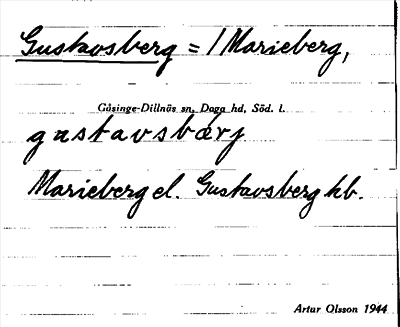 Gustavsberg = / Marieberg,
Gåsinge-Dillnäs sn, Daga hd, Söd. l.
gustavsbärj
Marieberg el. Gustavsberg kb.
Artur Olsson 1944